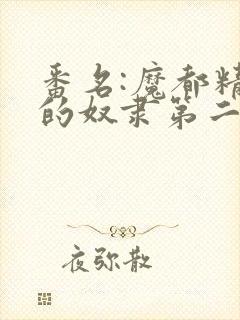 番名:魔都精
的奴隶第二
夜弥散